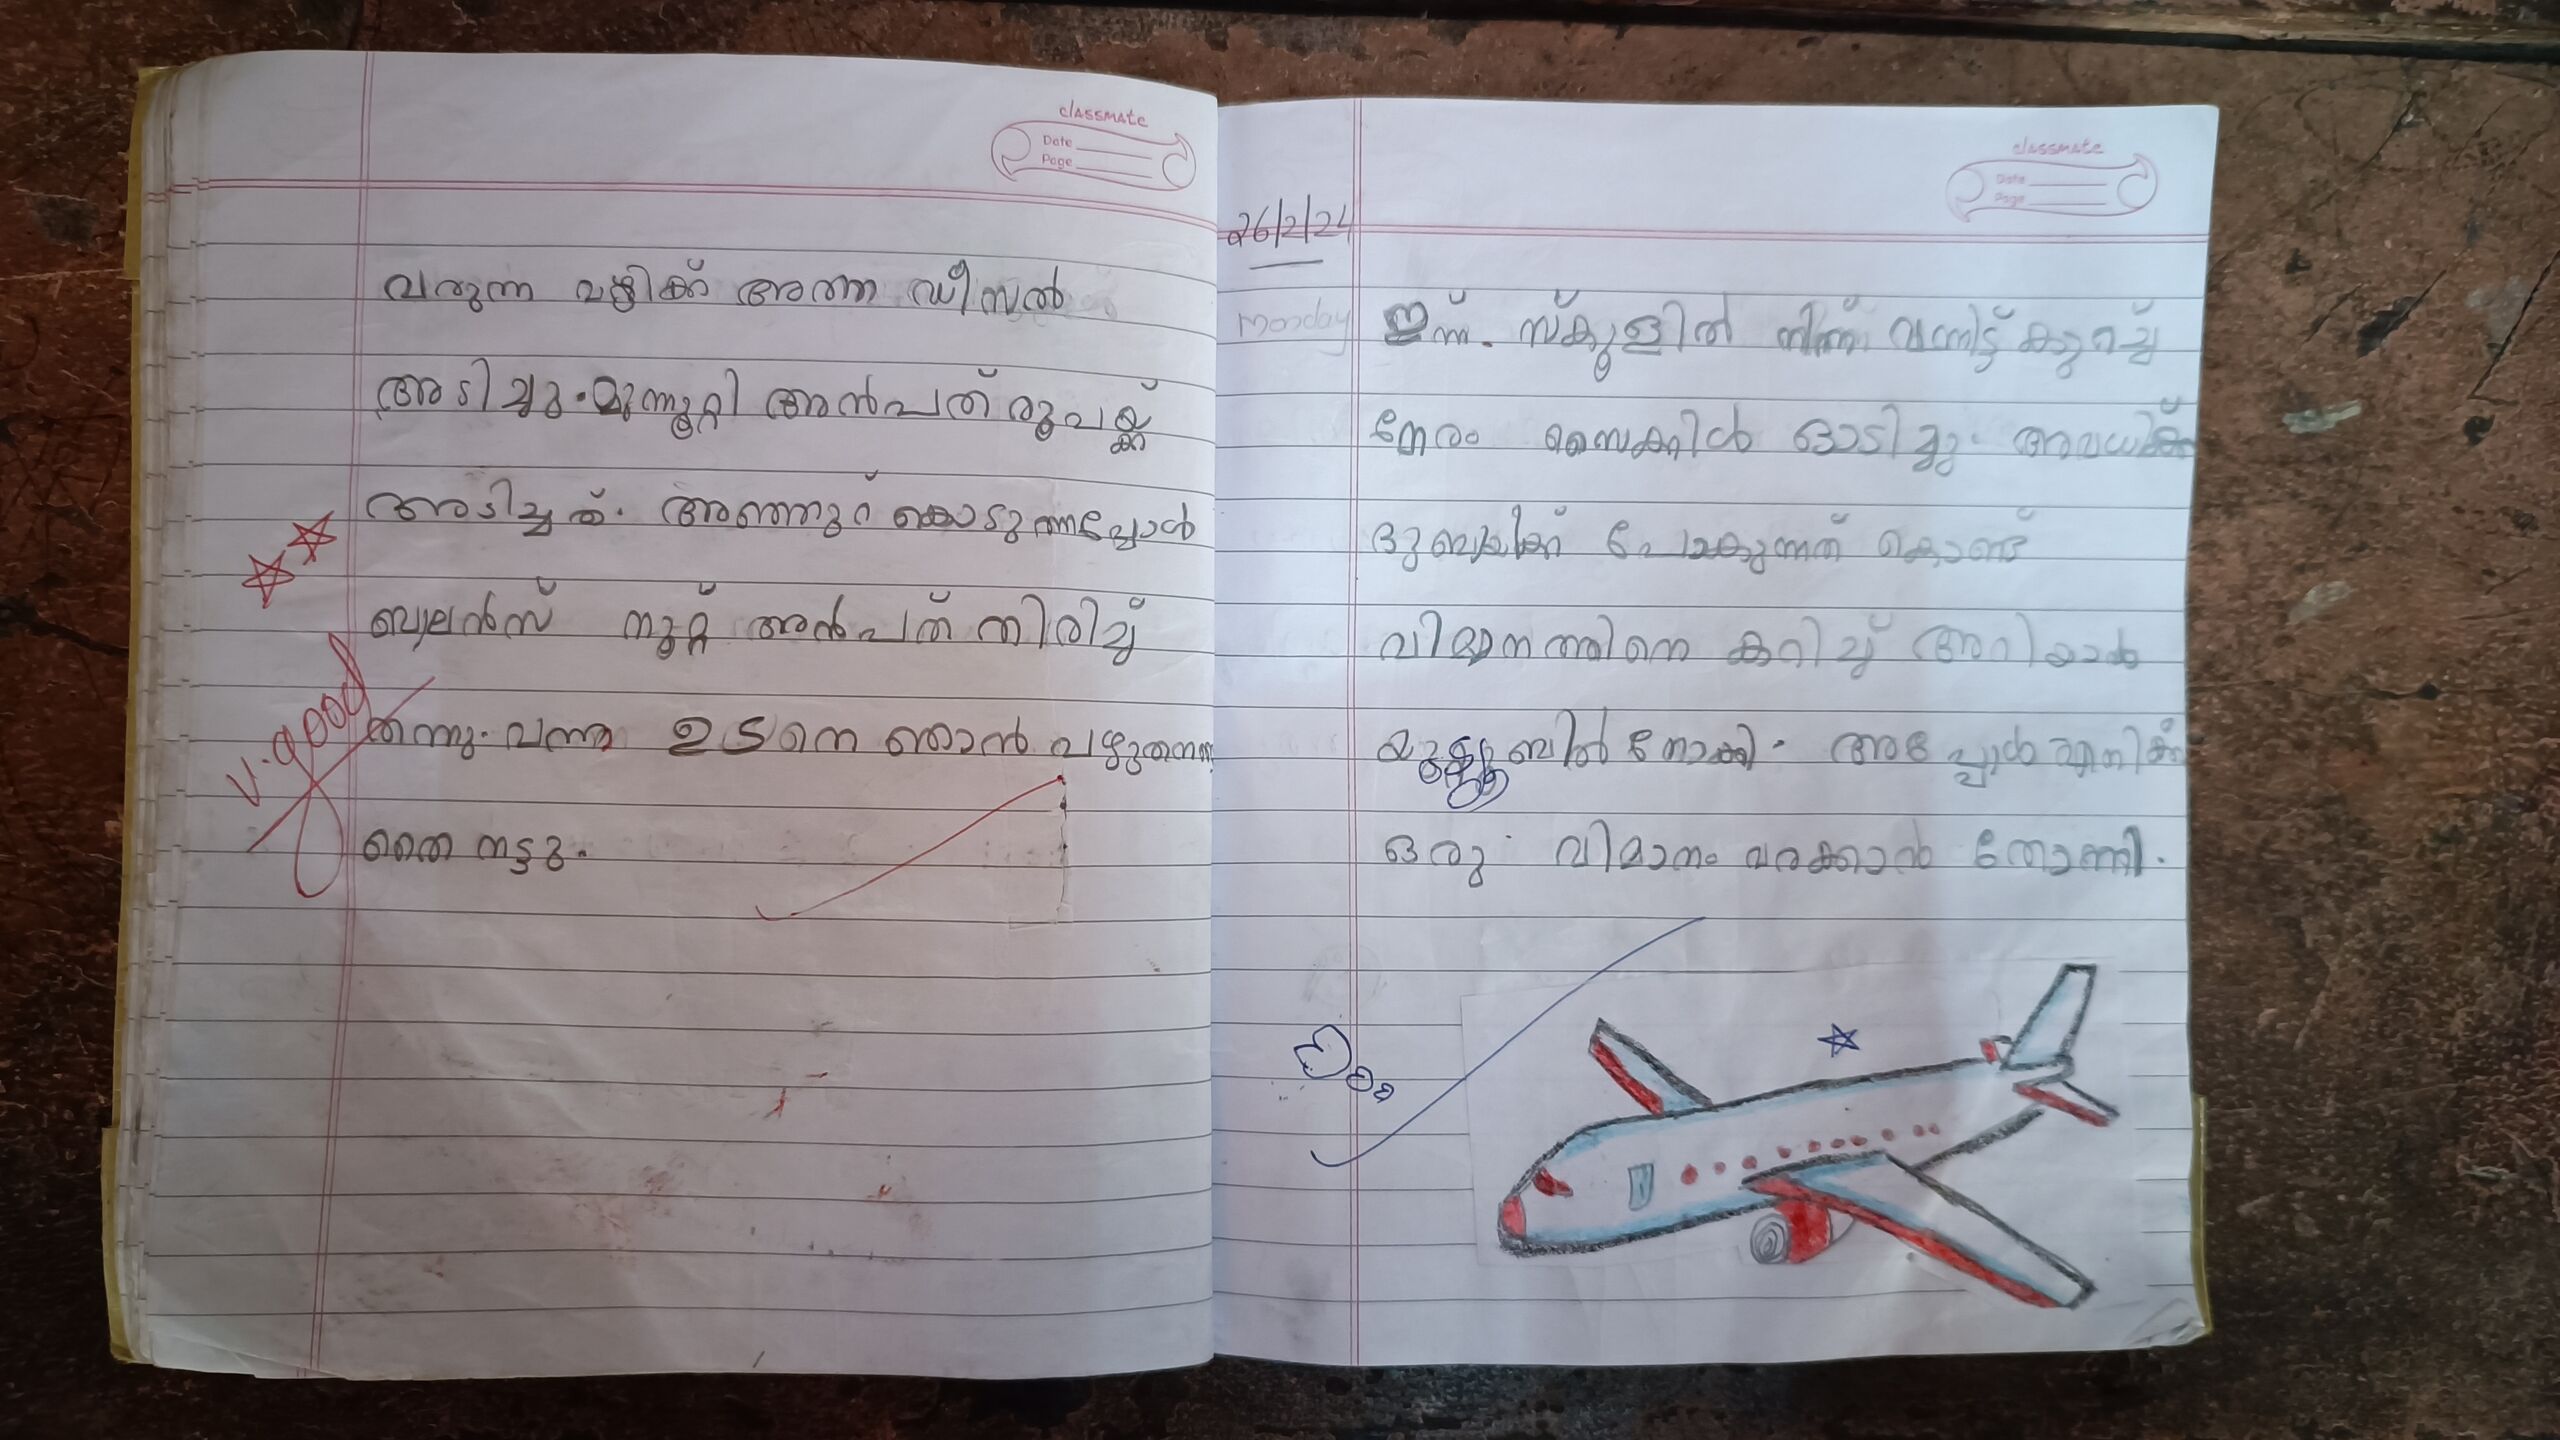 classmate
Date
Page
വരുന്ന വഴിക്ക് അത്ത ഡീസൽ
അടിച്ചു. മുന്നൂറ്റി അൻപത് രൂപയ്ക്ക്
അടിച്ചത്. അഞ്ഞൂറ് കൊടുത്തപ്പോൾ
ബാലൻസ് നൂറ്റ് അൻപത് തിരിച്ച്
തന്നു. വന്ന ഉടനെ ഞാൻ വഴുതനന
തൈ നട്ടു.
V.good
classmate
Date
Page
26/2/24
Monday
ഇന്ന്. സ്കൂളിൽ നിന്ന് വന്നിട്ട് കുറച്ച്
നേരം സൈക്കിൾ ഓടിച്ചു. അവധിക്ക്
ദുബായിക്ക് പോകുന്നത് കൊണ്ട്
വിമാനത്തിനെ കുറിച്ച് അറിയാൻ
നോക്കി. അപ്പോൾ എനിക്ക്
ഒരു വിമാനം വരക്കാൻ തോന്നി.